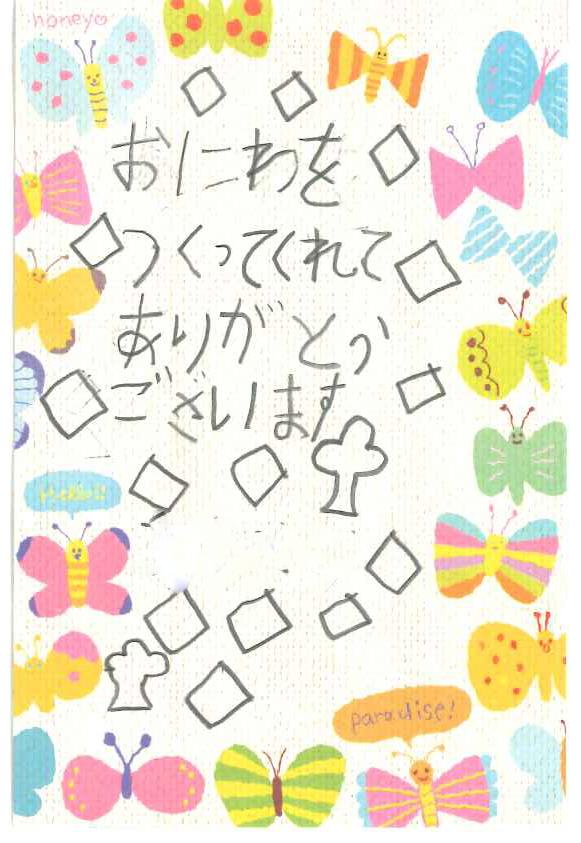 honey♡
おにわを
つくってくれて
ありがとう
ございます
Hello!!
paradise!